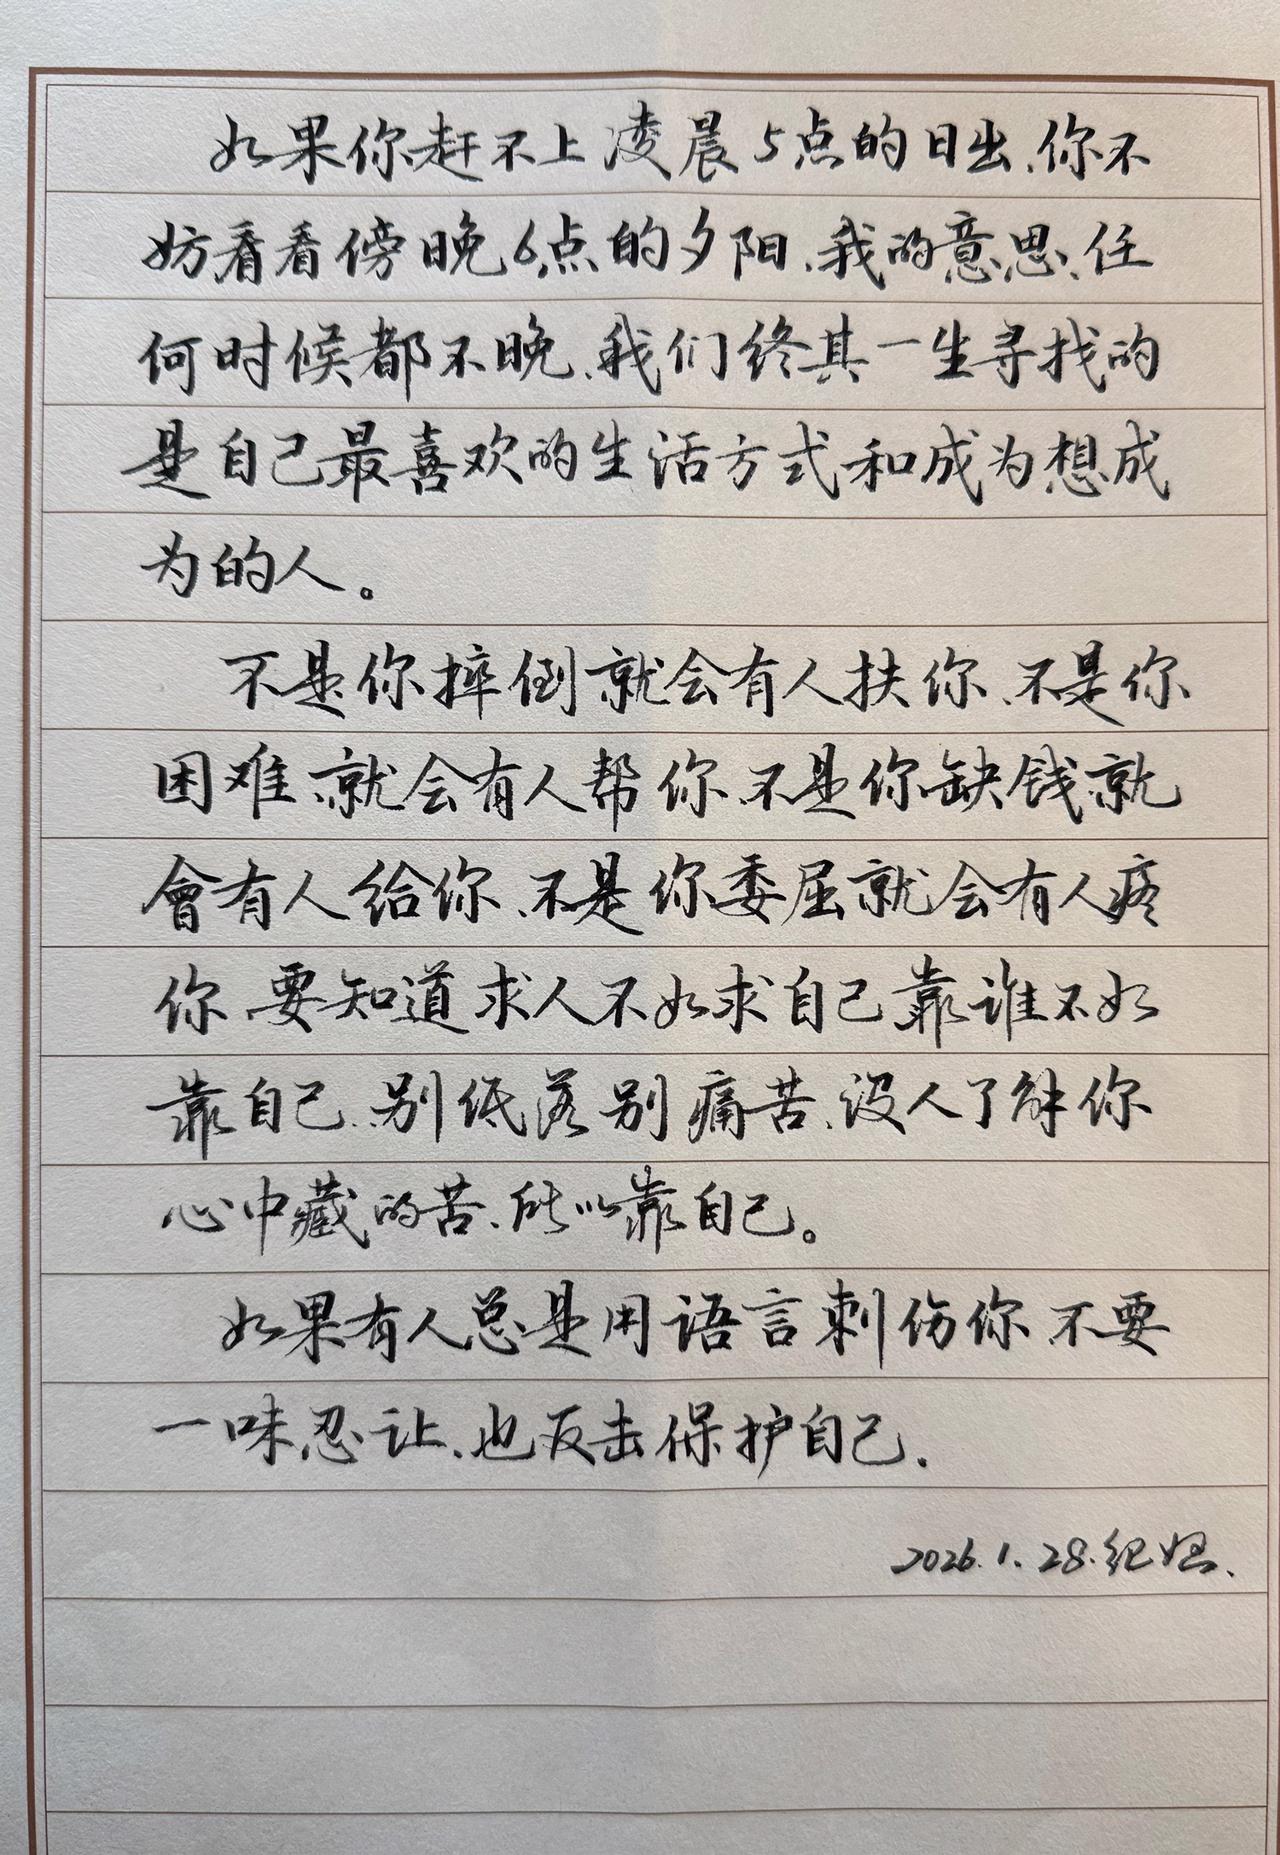 如果你赶不上凌晨5点的日出、你不
妨看看傍晚6点的夕阳、我的意思、任
何时候都不晚、我们终其一生寻找的
是自己最喜欢的生活方式和成为想成
为的人。
不是你摔倒就会有人扶你、不是你
困难、就会有人帮你、不是你缺钱就
會有人给你、不是你委屈就会有人疼
你、要知道求人不如求自己靠谁不如
靠自己、别低落别痛苦、没人了解你
心中藏的苦、所以靠自己。
如果有人总是用语言刺伤你、不要
一味忍让、也反击保护自己.
2026.1.28.纪